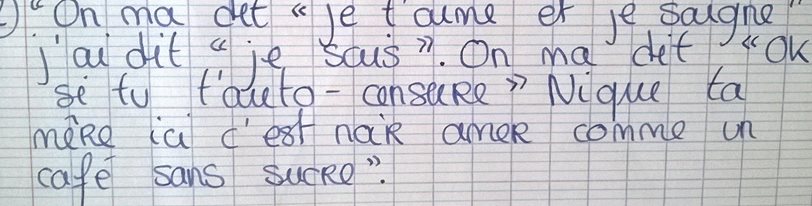 ) "On ma det " je t'aime et je saigne"
j'ai dit " je sais ". On ma det "OK
se tu t'auto-censure" Nique ta
mère ici c'est noir amer comme un
café sans sucre".